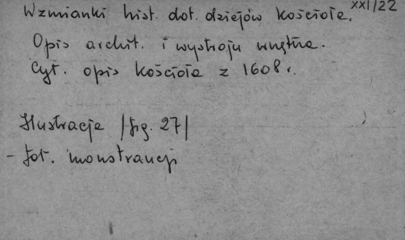 XXI/22
Wzmianki hist. dot. dziejów kościoła.
Opis archit. i wystroju wnętrza.
Cyt. opis kościoła z 1608 r.
Ilustracje /fig. 27/
- fot. monstrancji